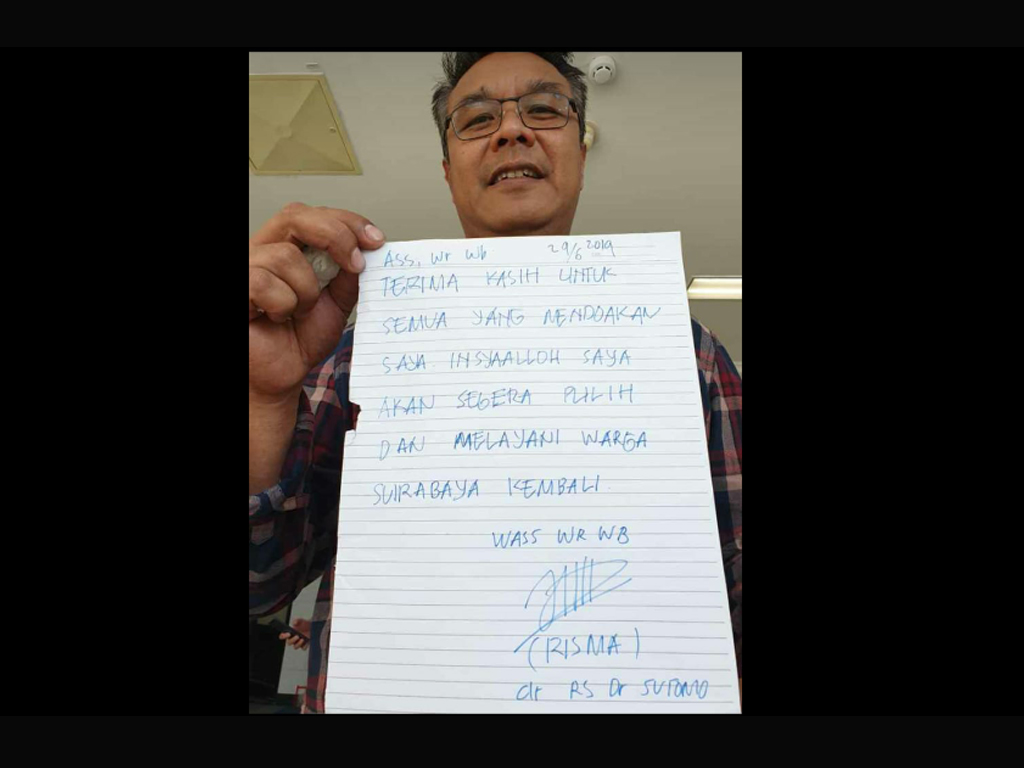 ASS, wr wb 29/6 2019
TERIMA KASIH UNTUK
SEMUA YANG MENDOAKAN
SAYA. INSYAALLOH SAYA
AKAN SEGERA PULIH
DAN MELAYANI WARGA
SURABAYA KEMBALI.
WASS WR WB
(RISMA)
dr RS Dr SUTOMO